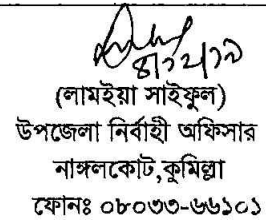 ৪/১২/১৯
(লামইয়া সাইফুল)
উপজেলা নির্বাহী অফিসার
নাঙ্গলকোট,কুমিল্লা
ফোনঃ ০৮০৩৩-৬৬১০১